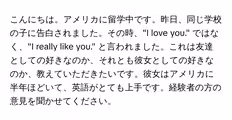 こんにちは。アメリカに留学中です。昨日、同じ学校
の子に告白されました。その時、"I love you." ではな
く、"I really like you." と言われました。これは友達
としての好きなのか、それとも彼女としての好きな
のか、教えていただきたいです。彼女はアメリカに
半年ほどいて、英語がとても上手です。経験者の方の
意見を聞かせてください。